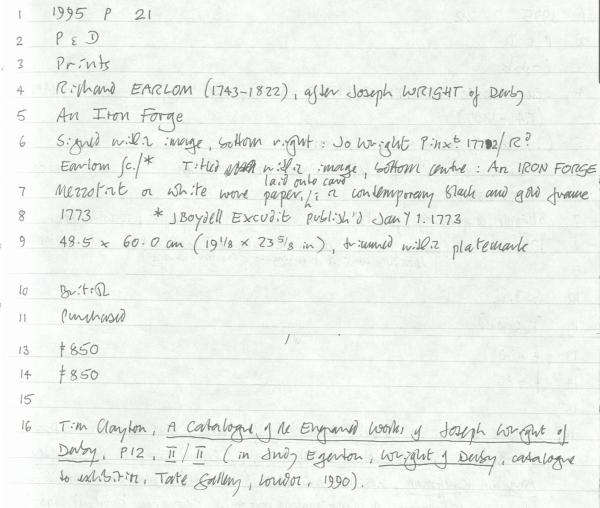 1 1995 P 21
2 P & D
3 Prints
4 Richard EARLOM (1743-1822), after Joseph WRIGHT of Derby
5 An Iron Forge
6 Signed within image, bottom right: Jo Wright Pinxt. 1772/Rd
Earlom Sc./* Titled within image, bottom centre: An IRON FORGE
laid onto card
7 Mezzotint on white wove paper, in contemporary black and gold frame
8 1773 * J Boydell Excudit publish'd Jany 1. 1773
9 48.5 x 60.0 cm (19 1/8 x 23 5/8 in), trimmed within platemark
10 British
11 Purchased
13 £850
14 £850
15
16 Tim Clayton, A Catalogue of the Engraved Works of Joseph Wright of
Derby, P12, II/II (in Judy Egerton, Wright of Derby, catalogue
to exhibition, Tate Gallery, London, 1990).